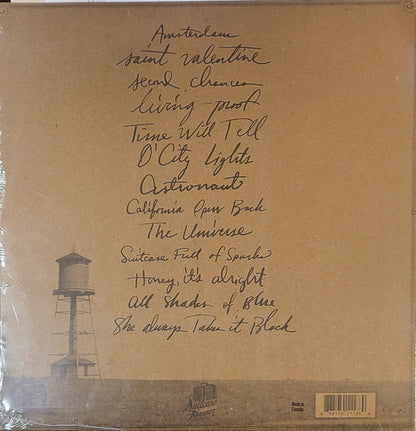 Amsterdam
saint valentine
second chances
living proof
Time Will Tell
O' City Lights
Astronaut
California Open Back
The Universe
Suitcase Full of Sparks
Honey, it's alright
All Shades of Blue
She always Takes it Black
Suitcase Town
Made in
Canada